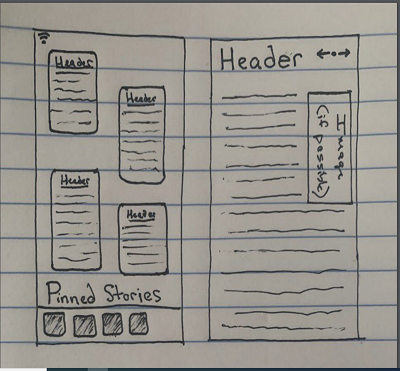 Header
Header
Header
Header
Pinned Stories
Header
Image
(if possible)